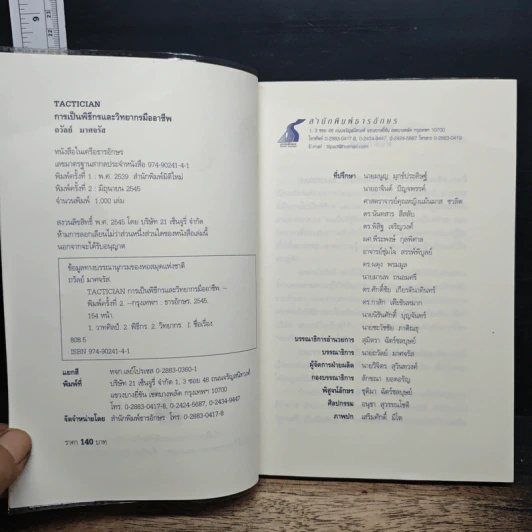 TACTICIAN
การเป็นพิธีกรและวิทยากรมืออาชีพ
ถวัลย์ มาศจรัส
หนังสือในเครือธารอักษร
เลขมาตรฐานสากลประจำหนังสือ 974-90241-4-1
พิมพ์ครั้งที่ 1 : พ.ศ. 2539 สำนักพิมพ์มิติใหม่
พิมพ์ครั้งที่ 2 : มิถุนายน 2545
จำนวนพิมพ์ 1,000 เล่ม
สงวนลิขสิทธิ์ พ.ศ. 2545 โดย บริษัท 21 เซ็นจูรี่ จำกัด
ห้ามการลอกเลียนไม่ว่าส่วนหนึ่งส่วนใดของหนังสือเล่มนี้
นอกจากจะได้รับอนุญาต
ข้อมูลทางบรรณานุกรมของหอสมุดแห่งชาติ
ถวัลย์ มาศจรัส.
TACTICIAN การเป็นพิธีกรและวิทยากรมืออาชีพ. --
พิมพ์ครั้งที่ 2. --กรุงเทพฯ : ธารอักษร, 2545.
154 หน้า.
1. วาทศิลป์. 2. พิธีกร. 2. วิทยากร. I. ชื่อเรื่อง.
808.5
ISBN 974-90241-4-1
แยกสี หจก. เลย์โปรเซส 0-2883-0360-1
พิมพ์ที่ บริษัท 21 เซ็นจูรี่ จำกัด 1, 3 ซอย 48 ถนนจรัญสนิทวงศ์
แขวงบางยี่ขัน เขตบางพลัด กรุงเทพฯ 10700
โทร. 0-2883-0417-8, 0-2424-5687, 0-2434-9447
จัดจำหน่ายโดย สำนักพิมพ์ธารอักษร โทร. 0-2883-0417-8
ราคา 140 บาท
สำนักพิมพ์ธารอักษร
1, 3 ซอย 48 ถนนจรัญสนิทวงศ์ เขตบางพลัด กรุงเทพฯ 10700
ที่ปรึกษา นายมนูญ
นายอาจินต์ ปัญจพรรค์
ศาสตราจารย์คุณหญิงแม้นมาส ชวลิต
ดร.นันทสาร สีสลับ
ดร.พิสิฐ เจริญวงศ์
ผศ.พีระพงษ์ กุลพิศาล
อาจารย์ชุมใจ สรรค์พิบูลย์
ดร.ผดุง พรมมูล
นายมานพ ถนอมศรี
ดร.ศักดิ์ชัย เกียรตินาคินทร์
นายนิรันศักดิ์ บุญจันทร์
บรรณาธิการอำนวยการ สุมิตรา ฉัตร์ชลบุษย์
บรรณาธิการ นายถวัลย์ มาศจรัส
ผู้จัดการฝ่ายผลิต นายวิจิตร สุวินทวงศ์
กองบรรณาธิการ ลักขณา ยอดอรัญ
พิสูจน์อักษร ชุติมา ฉัตร์ชลบุษย์
ศิลปกรรม อนุชา สุวรรณโชติ
ภาพปก เสริมศักดิ์ มีโต